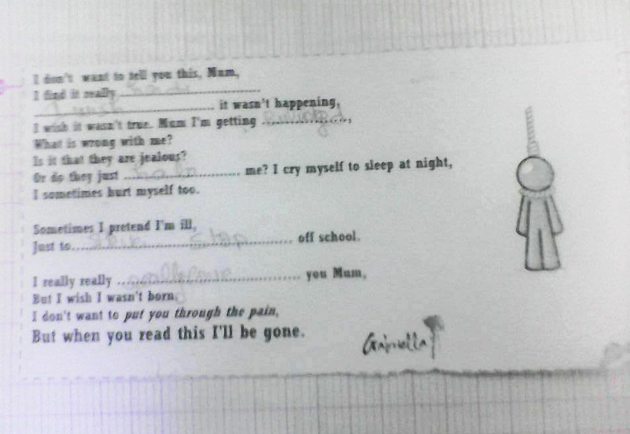 I don't want to tell you this, Mum,
I find it really ..............................
.............................. it wasn't happening,
I wish it wasn't true. Mum I'm getting ....................,
What is wrong with me?
Is it that they are jealous?
Or do they just ......................... me? I cry myself to sleep at night,
I sometimes hurt myself too.
Sometimes I pretend I'm ill,
Just to................................................ off school.
I really really ........................................ you Mum,
But I wish I wasn't born.
I don't want to put you through the pain,
But when you read this I'll be gone.